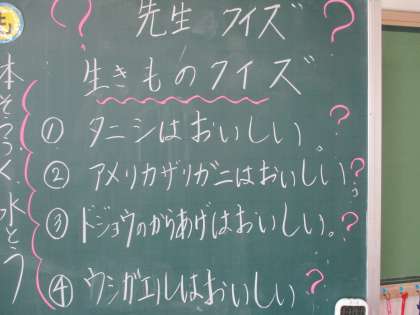 ？ 先生 クイズ ？
生きものクイズ
① タニシはおいしい。？
② アメリカザリガニはおいしい？
③ ドジョウのからあげはおいしい。？
④ ウシガエルはおいしい？
水とう